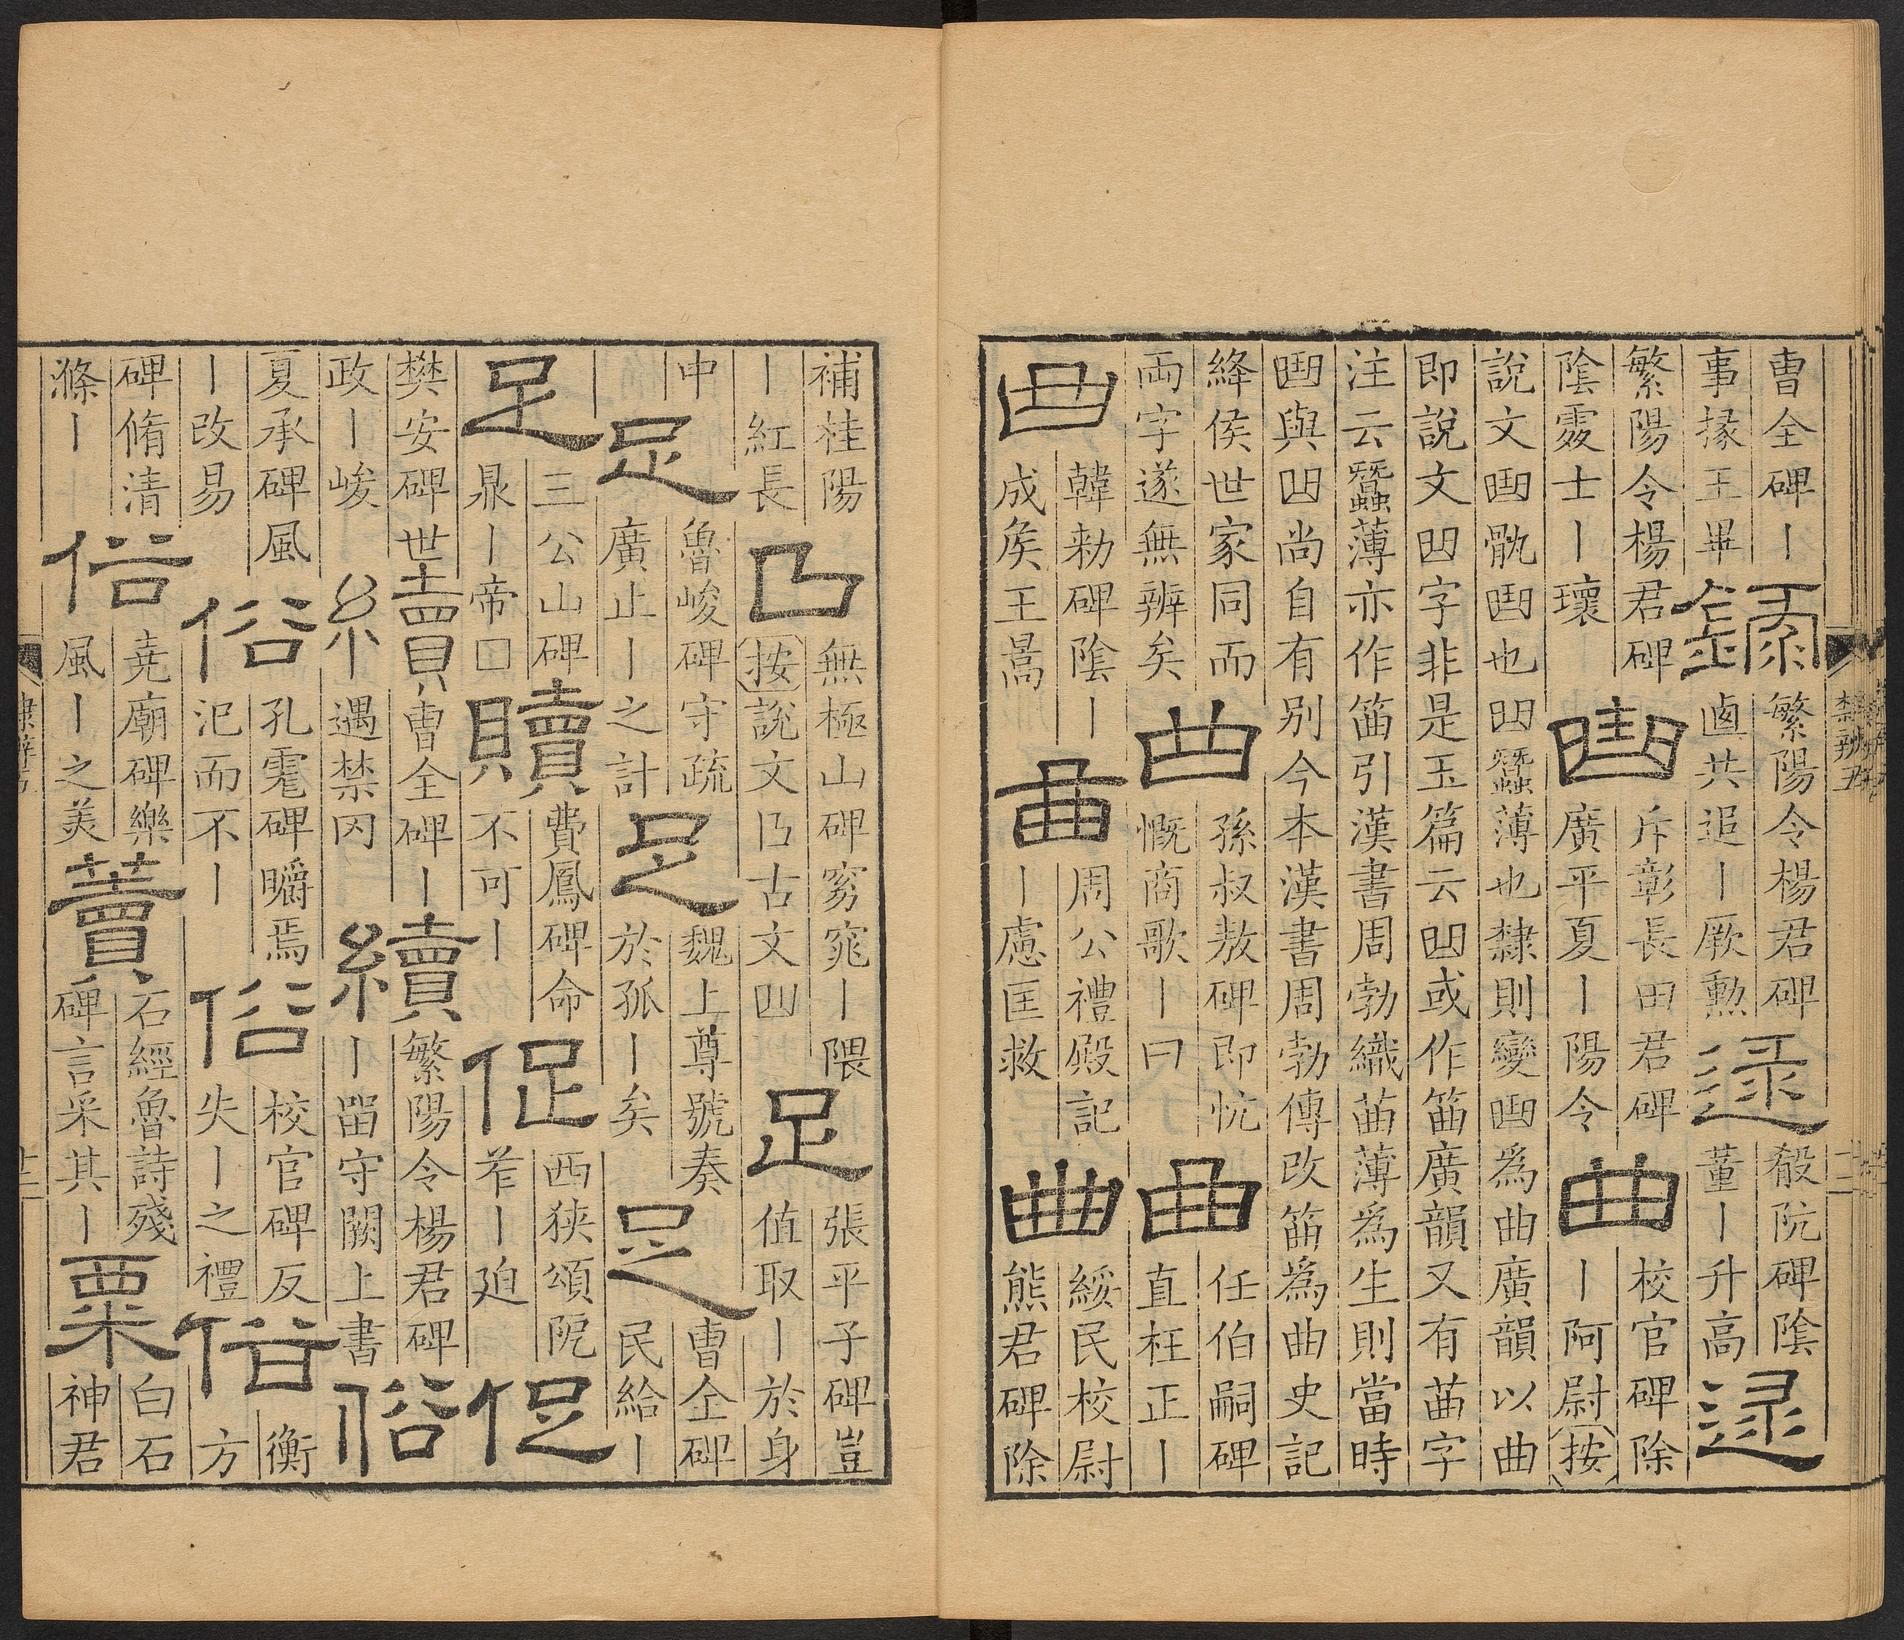 曹全碑丨
事掾王畢
錄
繁陽令楊君碑
鹵共追丨厥勳
逯
殽阬碑陰
董丨升高
逯
繁陽令楊君碑
陰處士丨瓌
斥彰長田君碑
廣平夏丨陽令
曲
校官碑除
丨阿尉按
說文骫也蠶薄也隸則變為曲廣韻以曲
即說文字非是玉篇云或作䒼廣韻又有苗字
注云蠶薄亦作笛引漢書周勃織苗薄為生則當時
與尚自有別今本漢書周勃傳改笛為曲史記
絳侯世家同而
両字遂無辨矣
曲
孫叔敖碑即忼
慨商歌丨曰
曲
任伯嗣碑
直枉正丨
曲
韓勑碑陰丨
成矦王暠
曲
周公禮殿記
丨慮匡救
曲
綏民校尉
熊君碑除
補桂陽
丨紅長
無極山碑窈窕丨隈
按說文古文
足
張平子碑豈
値取丨於身
足
魯峻碑守疏
廣止丨之計
足
魏上尊號奏
於孤丨矣
足
曹全碑
民給丨
足
三公山碑
鼎丨帝□
贖
費鳳碑命
不可丨
促
西狹頌阸
莋丨廹
促
樊安碑世
政丨峻
續
曹全碑丨
遇禁罔
續
繁陽令楊君碑
丨畱守闕上書
俗
夏承碑風
丨改易
俗
孔宙碑㬭焉
汜而不丨
俗
校官碑反
失丨之禮
俗
衡
方
碑脩清
滌丨
俗
堯廟碑樂
風丨之美
藚
石經魯詩殘
碑言采其丨
粟
白石
神君